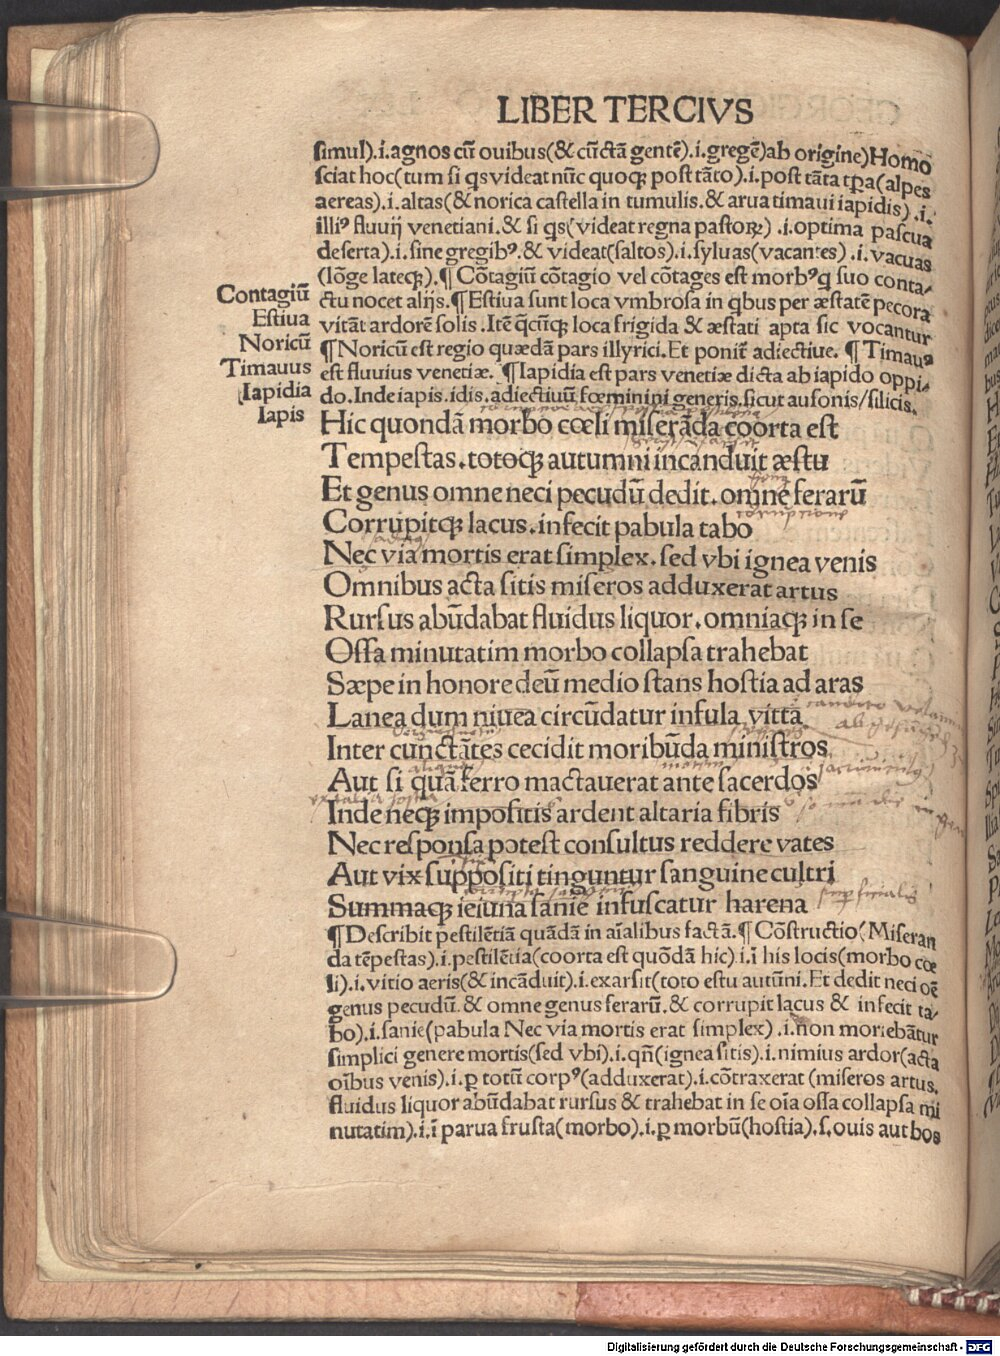 LIBER TERCIVS
simul).i.agnos cū ouibus(& cūctā gentē).i.gregē)ab origine)Homo
sciat hoc(tum si qs videat nūc quoqꝫ post tāto).i.post tāta tꝑa(alpes
aereas).i.altas(& norica castella in tumulis.& arua timaui iapidis).i.
illiꝰ fluuij venetiani.& si qs(videat regna pastoꝝ).i.optima pascua
deserta).i.sine gregibꝰ.& videat(saltos).i.syluas(vacantes).i.vacuas
(lōge lateqꝫ).¶ Cōtagiū cōtagio vel cōtages est morbꝰ q suo conta-
ctu nocet alijs.¶ Estiua sunt loca vmbrosa in qbus per æstatē pecora
vitāt ardorē solis.Itē qcūqꝫ loca frigida & æstati apta sic vocantur
¶ Noricū est regio quædā pars illyrici.Et ponit̄ adiectiue. ¶ Timauꝰ
est fluuius venetiæ. ¶ Iapidia est pars venetiæ dicta ab iapido oppi-
do.Inde iapis.idis.adiectiuū fœminini generis.sicut ausonis/silicis.
Contagiū
Estiua
Noricū
Timauus
Iapidia
Iapis
Hic quondā morbo cœli miserāda coorta est
Tempestas.totoqꝫ autumni incanduit æstu
Et genus omne neci pecudū dedit.omne ferarū
Corrupitqꝫ lacus.infecit pabula tabo
Nec via mortis erat simplex.sed vbi ignea venis
Omnibus acta sitis miseros adduxerat artus
Rursus abūdabat fluidus liquor.omniaqꝫ in se
Ossa minutatim morbo collapsa trahebat
Sæpe in honore deū medio stans hostia ad aras
Lanea dum niuea circūdatur infula vitta
Inter cunctātes cecidit moribūda ministros
Aut si quā ferro mactauerat ante sacerdos
Inde neqꝫ impositis ardent altaria fibris
Nec responsa potest consultus reddere vates
Aut vix suppositi tinguntur sanguine cultri
Summaqꝫ ieiuna sanie infuscatur harena
¶ Describit pestilētiā quādā in aīalibus factā.¶ Cōstructio(Miseran
da tēpestas).i.pestilētia(coorta est quōdā hic).i.ī his locis(morbo cœ
li).i.vitio aeris(& incāduit).i.exarsit(toto estu autūni.Et dedit neci oē
genus pecudū.& omne genus ferarū.& corrupit lacus & infecit ta-
bo).i.sanie(pabula Nec via mortis erat simplex).i.non moriebātur
simplici genere mortis(sed vbi).i.qn̄(ignea sitis).i.nimius ardor(acta
oībus venis).i.ꝑ totū corpꝰ(adduxerat).i.cōtraxerat (miseros artus.
fluidus liquor abūdabat rursus & trahebat in se oīa ossa collapsa mi
nutatim).i.ī parua frusta(morbo).i.ꝑ morbū(hostia).s.ouis aut bos
Digitalisierung gefördert durch die Deutsche Forschungsgemeinschaft - DFG